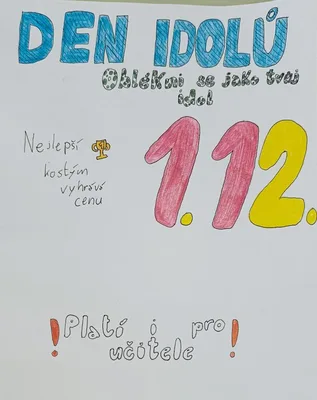 DEN IDOLŮ
Oblékni se jako tvůj
idol
1.12.
Nejlepší
kostým
vyhrává
cenu
Platí i pro
učitele
! !